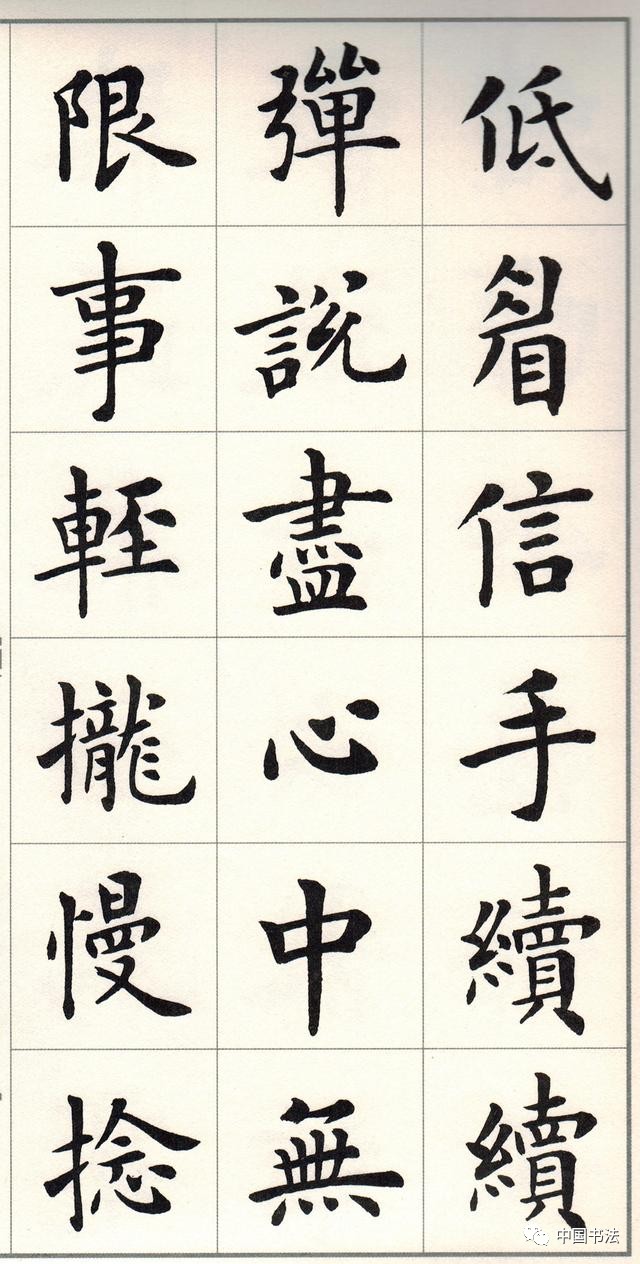 低眉信手續續
彈説盡心中無
限事輕攏慢捻
中国书法